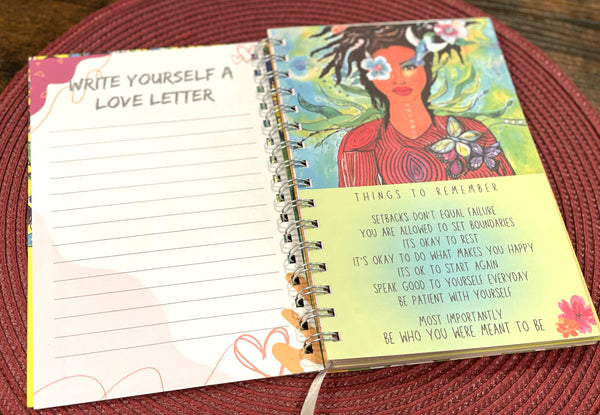 WRITE YOURSELF A
LOVE LETTER
THINGS TO REMEMBER
SETBACKS DON'T EQUAL FAILURE
YOU ARE ALLOWED TO SET BOUNDARIES
ITS OKAY TO REST
IT'S OKAY TO DO WHAT MAKES YOU HAPPY
ITS OK TO START AGAIN
SPEAK GOOD TO YOURSELF EVERYDAY
BE PATIENT WITH YOURSELF
MOST IMPORTANTLY
BE WHO YOU WERE MEANT TO BE